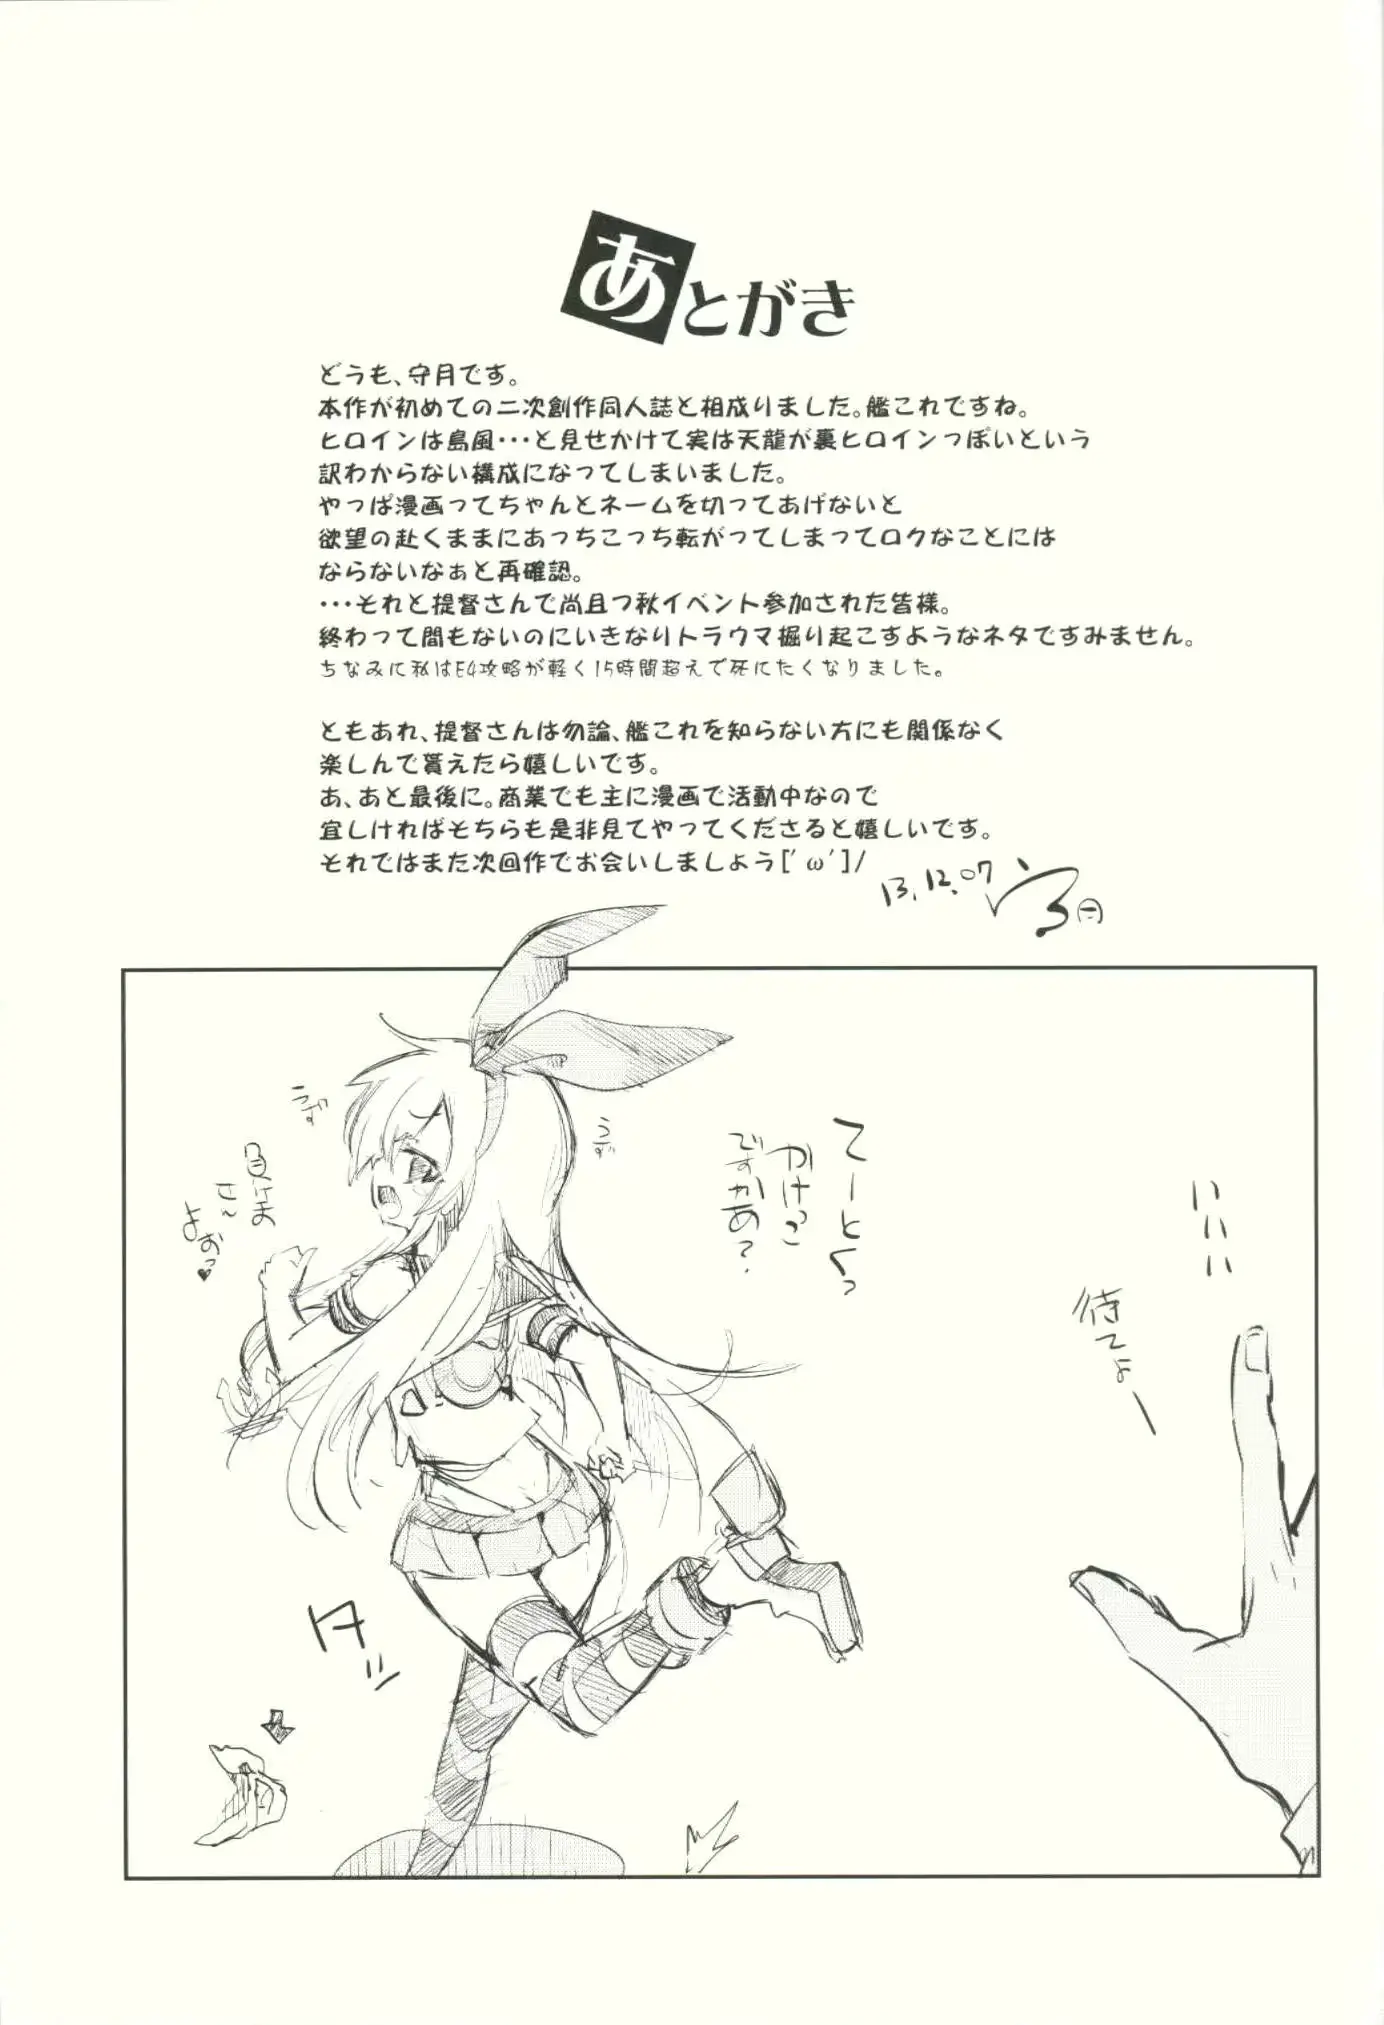 あとがき
どうも、守月です。
本作が初めての二次創作同人誌と相成りました。艦これですね。
ヒロインは島風・・・と見せかけて実は天龍が裏ヒロインっぽいという
訳わからない構成になってしまいました。
やっぱ漫画ってちゃんとネームを切ってあげないと
欲望の赴くままにあっちこっち転がってしまってロクなことには
ならないなぁと再確認。
・・・それと提督さんで尚且つ秋イベント参加された皆様。
終わって間もないのにいきなりトラウマ掘り起こすようなネタですみません。
ちなみに私はE4攻略が軽く15時間超えで死にたくなりました。
ともあれ、提督さんは勿論、艦これを知らない方にも関係なく
楽しんで貰えたら嬉しいです。
あ、あと最後に。商業でも主に漫画で活動中なので
宜しければそちらも是非見てやってくださると嬉しいです。
それではまた次回作でお会いしましょう['ω']/
13.12.07
いいい
待てよー
てーとくっ
かけっこ
ですかあ?
うず
うず
負けま
さ～
よおっ♥